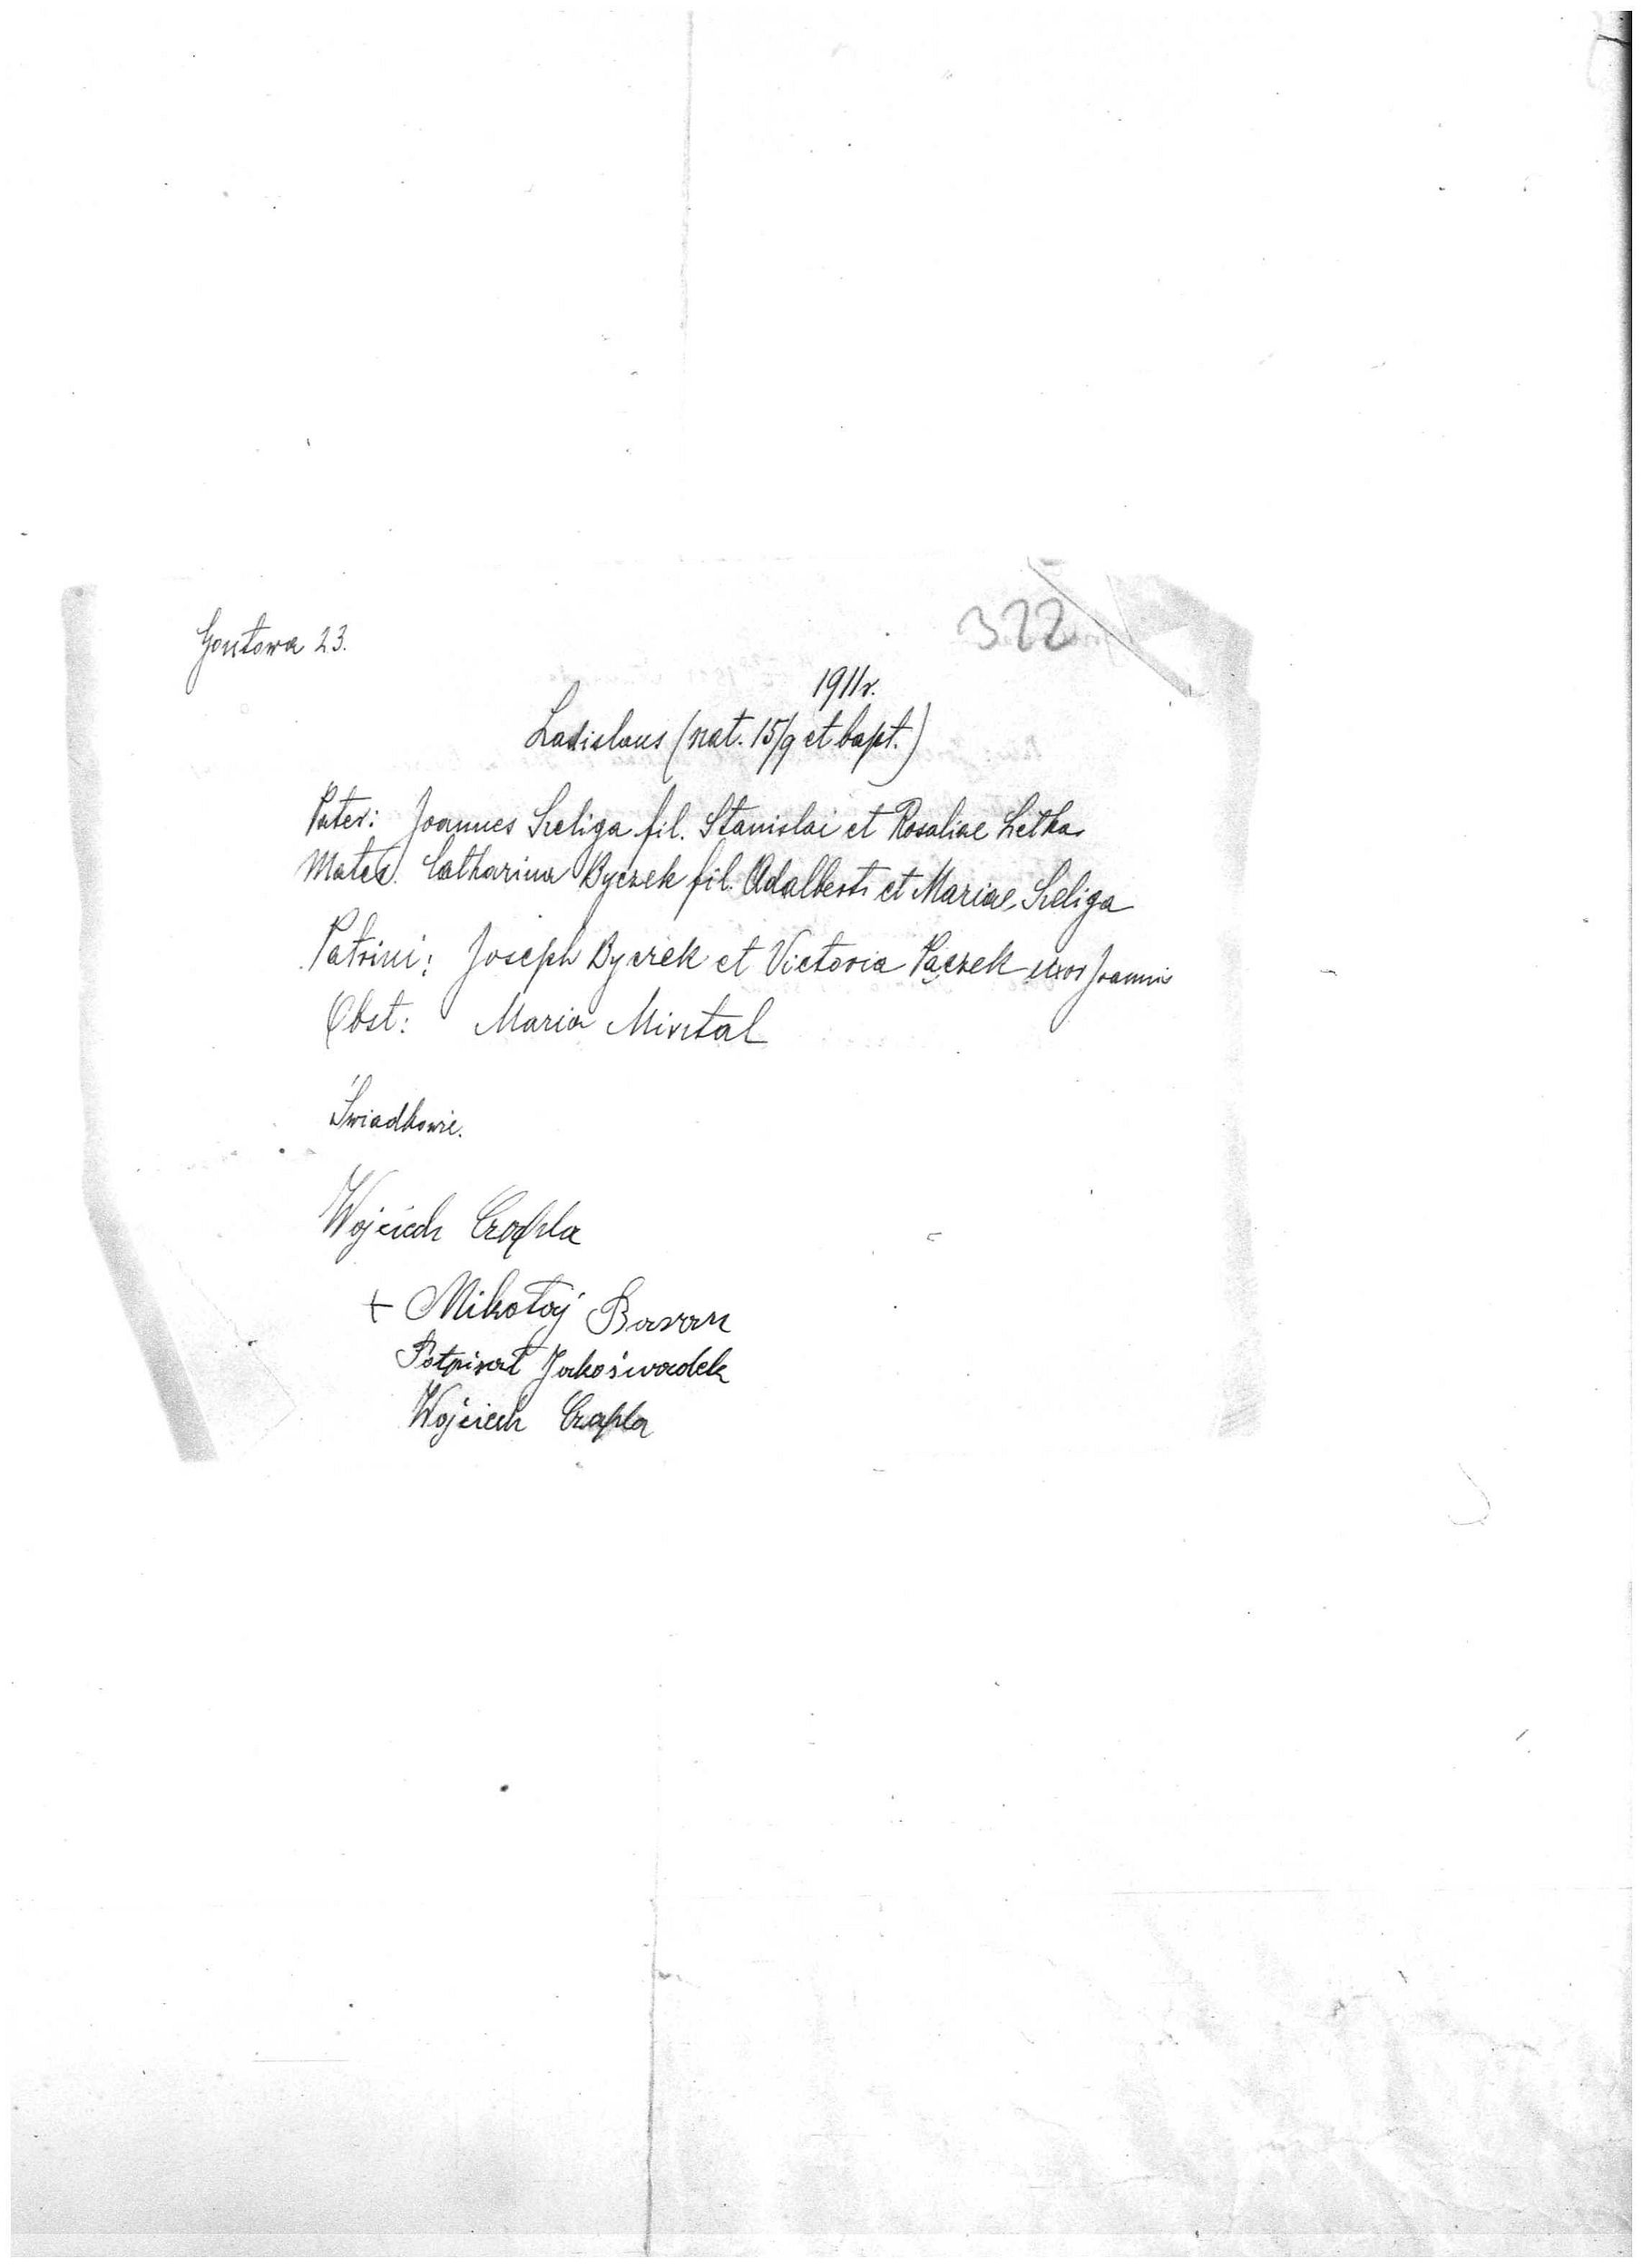 Gontowa 23.
322
1911r.
Ladislaus (nat. 15/9 et bapt.)
Pater: Joannes Szeliga fil. Stanislai et Rosaliae Letka
Mater. Catharina Byczek fil. Adalberti et Mariae Szeliga
Patrini: Joseph Byczek et Victoria Pączek uxor Joannis
Obst: Maria Misztal
Świadkowie.
Wojciech Czapla
+ Mikołaj Baran
Potpisał Jakoświadek
Wojciech Czapla